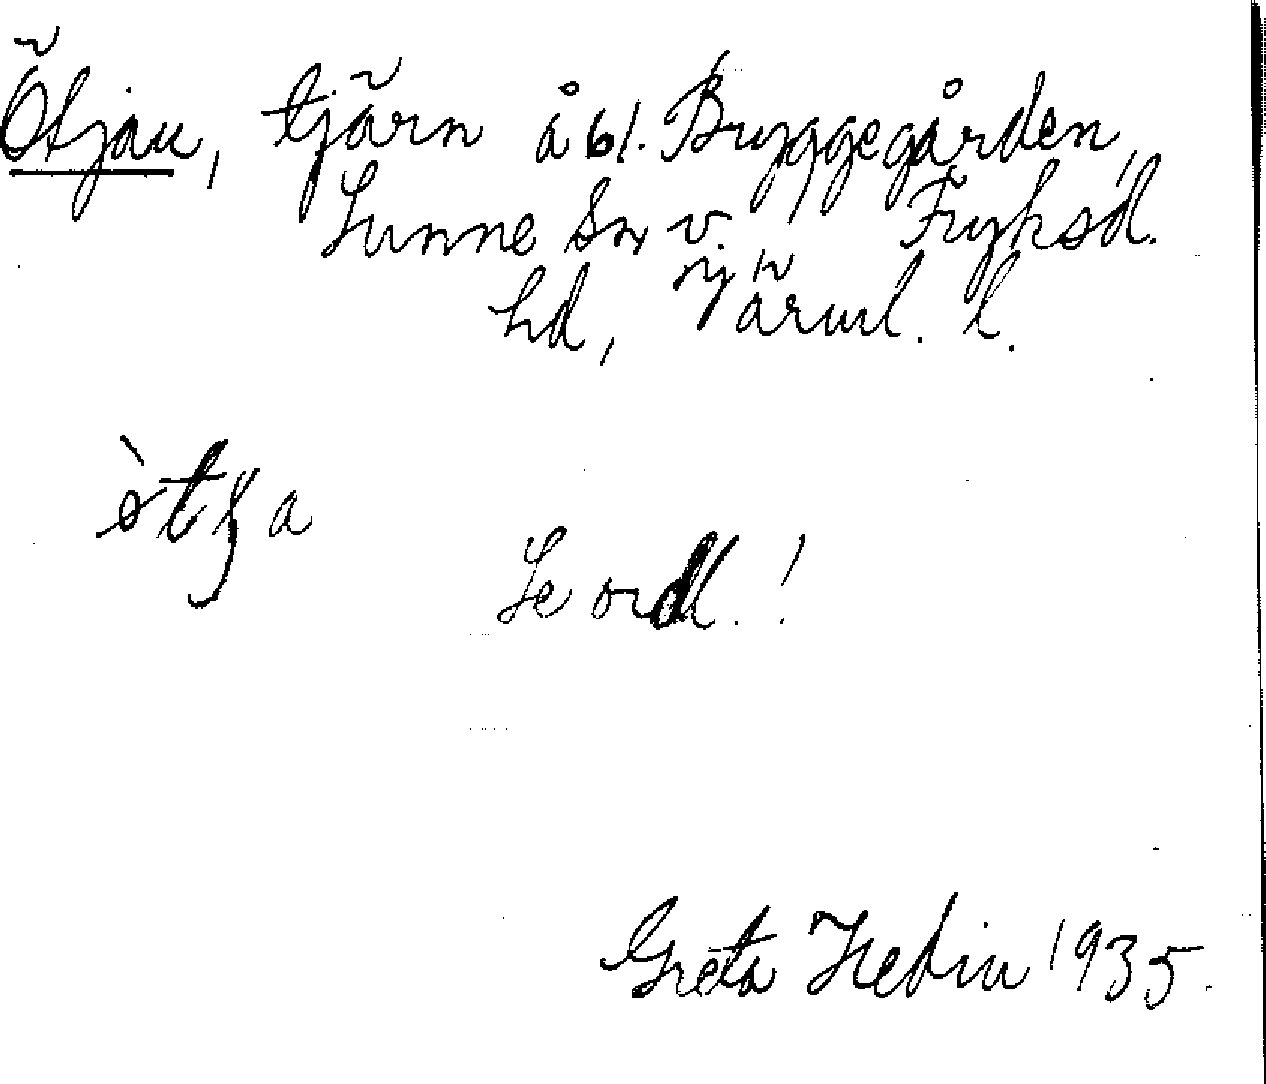 Ötjan, tjärn å bl. Bryggegården,
Sunne Sn v. Fryksd.
hd, Värml. l.
Se ordl.!
Greta Hedin 1935.